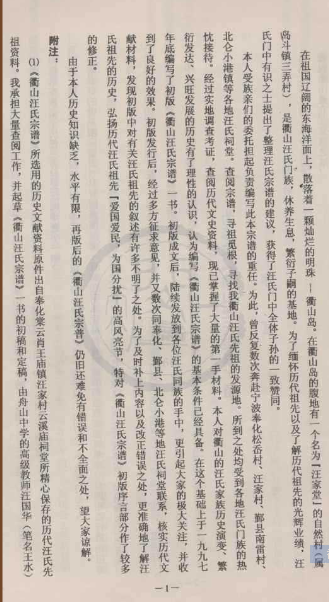 在祖国辽阔的东海洋面上，散落着一颗灿烂的明珠——衢山岛。在衢山岛的腹地有一个名为『汪家堂』的自然村（属
岛斗镇三弄村），是衢山汪氏门族，休养生息，繁衍子嗣的基地。为了缅怀历代祖先以及了解历代祖先的光辉业绩，汪
氏门中有识之士提出了整理汪氏宗谱的建议，获得了汪氏门中全体子孙的一致赞同。
本人受族亲们的委托担起负责编写此本宗谱的重任。为此，曾反复数次奔赴宁波奉化松岙村、汪家村、鄞县南雷村、
北仑小港镇等各地汪氏祠堂。查阅宗谱，寻祖觅根，寻找我衢山汪氏先祖的发源地。所到之处均受到各地汪氏门族的热
忱接待。经过实地调查考证，查阅历代文史资料，现已掌握了大量的第一手材料。本人对衢山的汪氏家族历史演变、繁
衍发达、兴旺发展的历史有了理性的认识，认为编写《衢山汪氏宗谱》的基本条件已经具备。在这个基础上于一九九七
年底编写了初版《衢山汪氏宗谱》一书。初版成文后，陆续发放到各位汪氏同族的手中，更引起大家的极大关注，并收
到了良好的效果。初版发行后，经过多方征求意见，并又数次同奉化、鄞县、北仑小港等地汪氏祠堂联系，核实历代文
献材料，发现初版中对有关汪氏祖先的叙述有许多不明了之处。为了及时补上内容以及改正错误之处，更准确地了解汪
氏祖先的历史，弘扬历代汪氏祖先『爱国爱民，为国分忧』的高风亮节，特对《衢山汪氏宗谱》初版序言部分作了较多
的修正。
由于本人历史知识缺乏，水平有限，再版后的《衢山汪氏宗普》仍旧还难免有错误和不全面之处，望大家谅解。
附注：
(1)《衢山汪氏宗谱》所选用的历史文献资料原件出自奉化棠云肖王庙镇汪家村云溪庙祠堂所精心保存的历代汪氏先
祖资料。我承担大量查阅工作，并起草《衢山汪氏宗谱》一书的初稿和定稿，由舟山中学的高级教师汪国华（笔名王水）
—1—